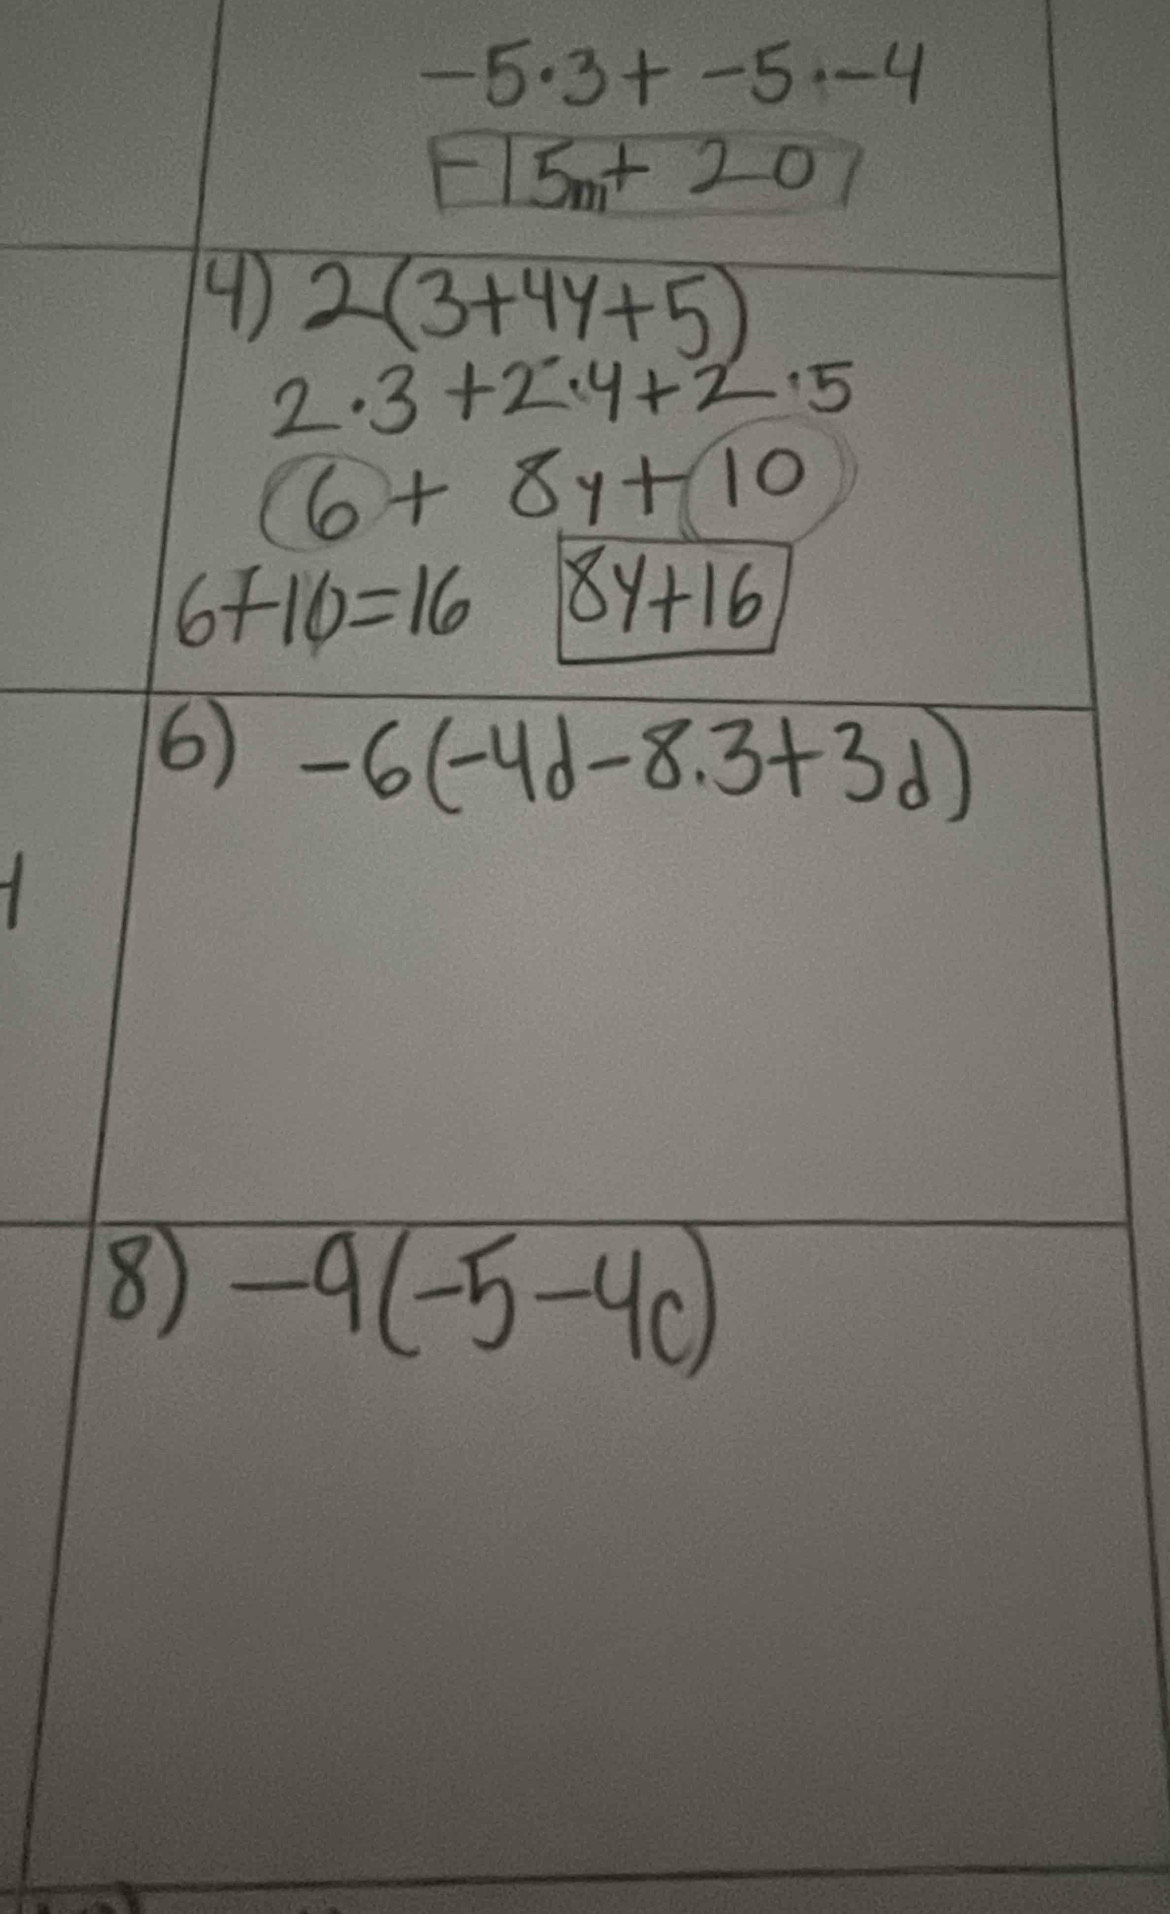 -5·3+ -5·-4
-15m+ 20
4) 2(3+4y+5)
2·3+2·4+2·5
6+ 8y+10
6+10=16 8y+16
6) -6(-4d-8.3+3d)
8) -9(-5-4c)